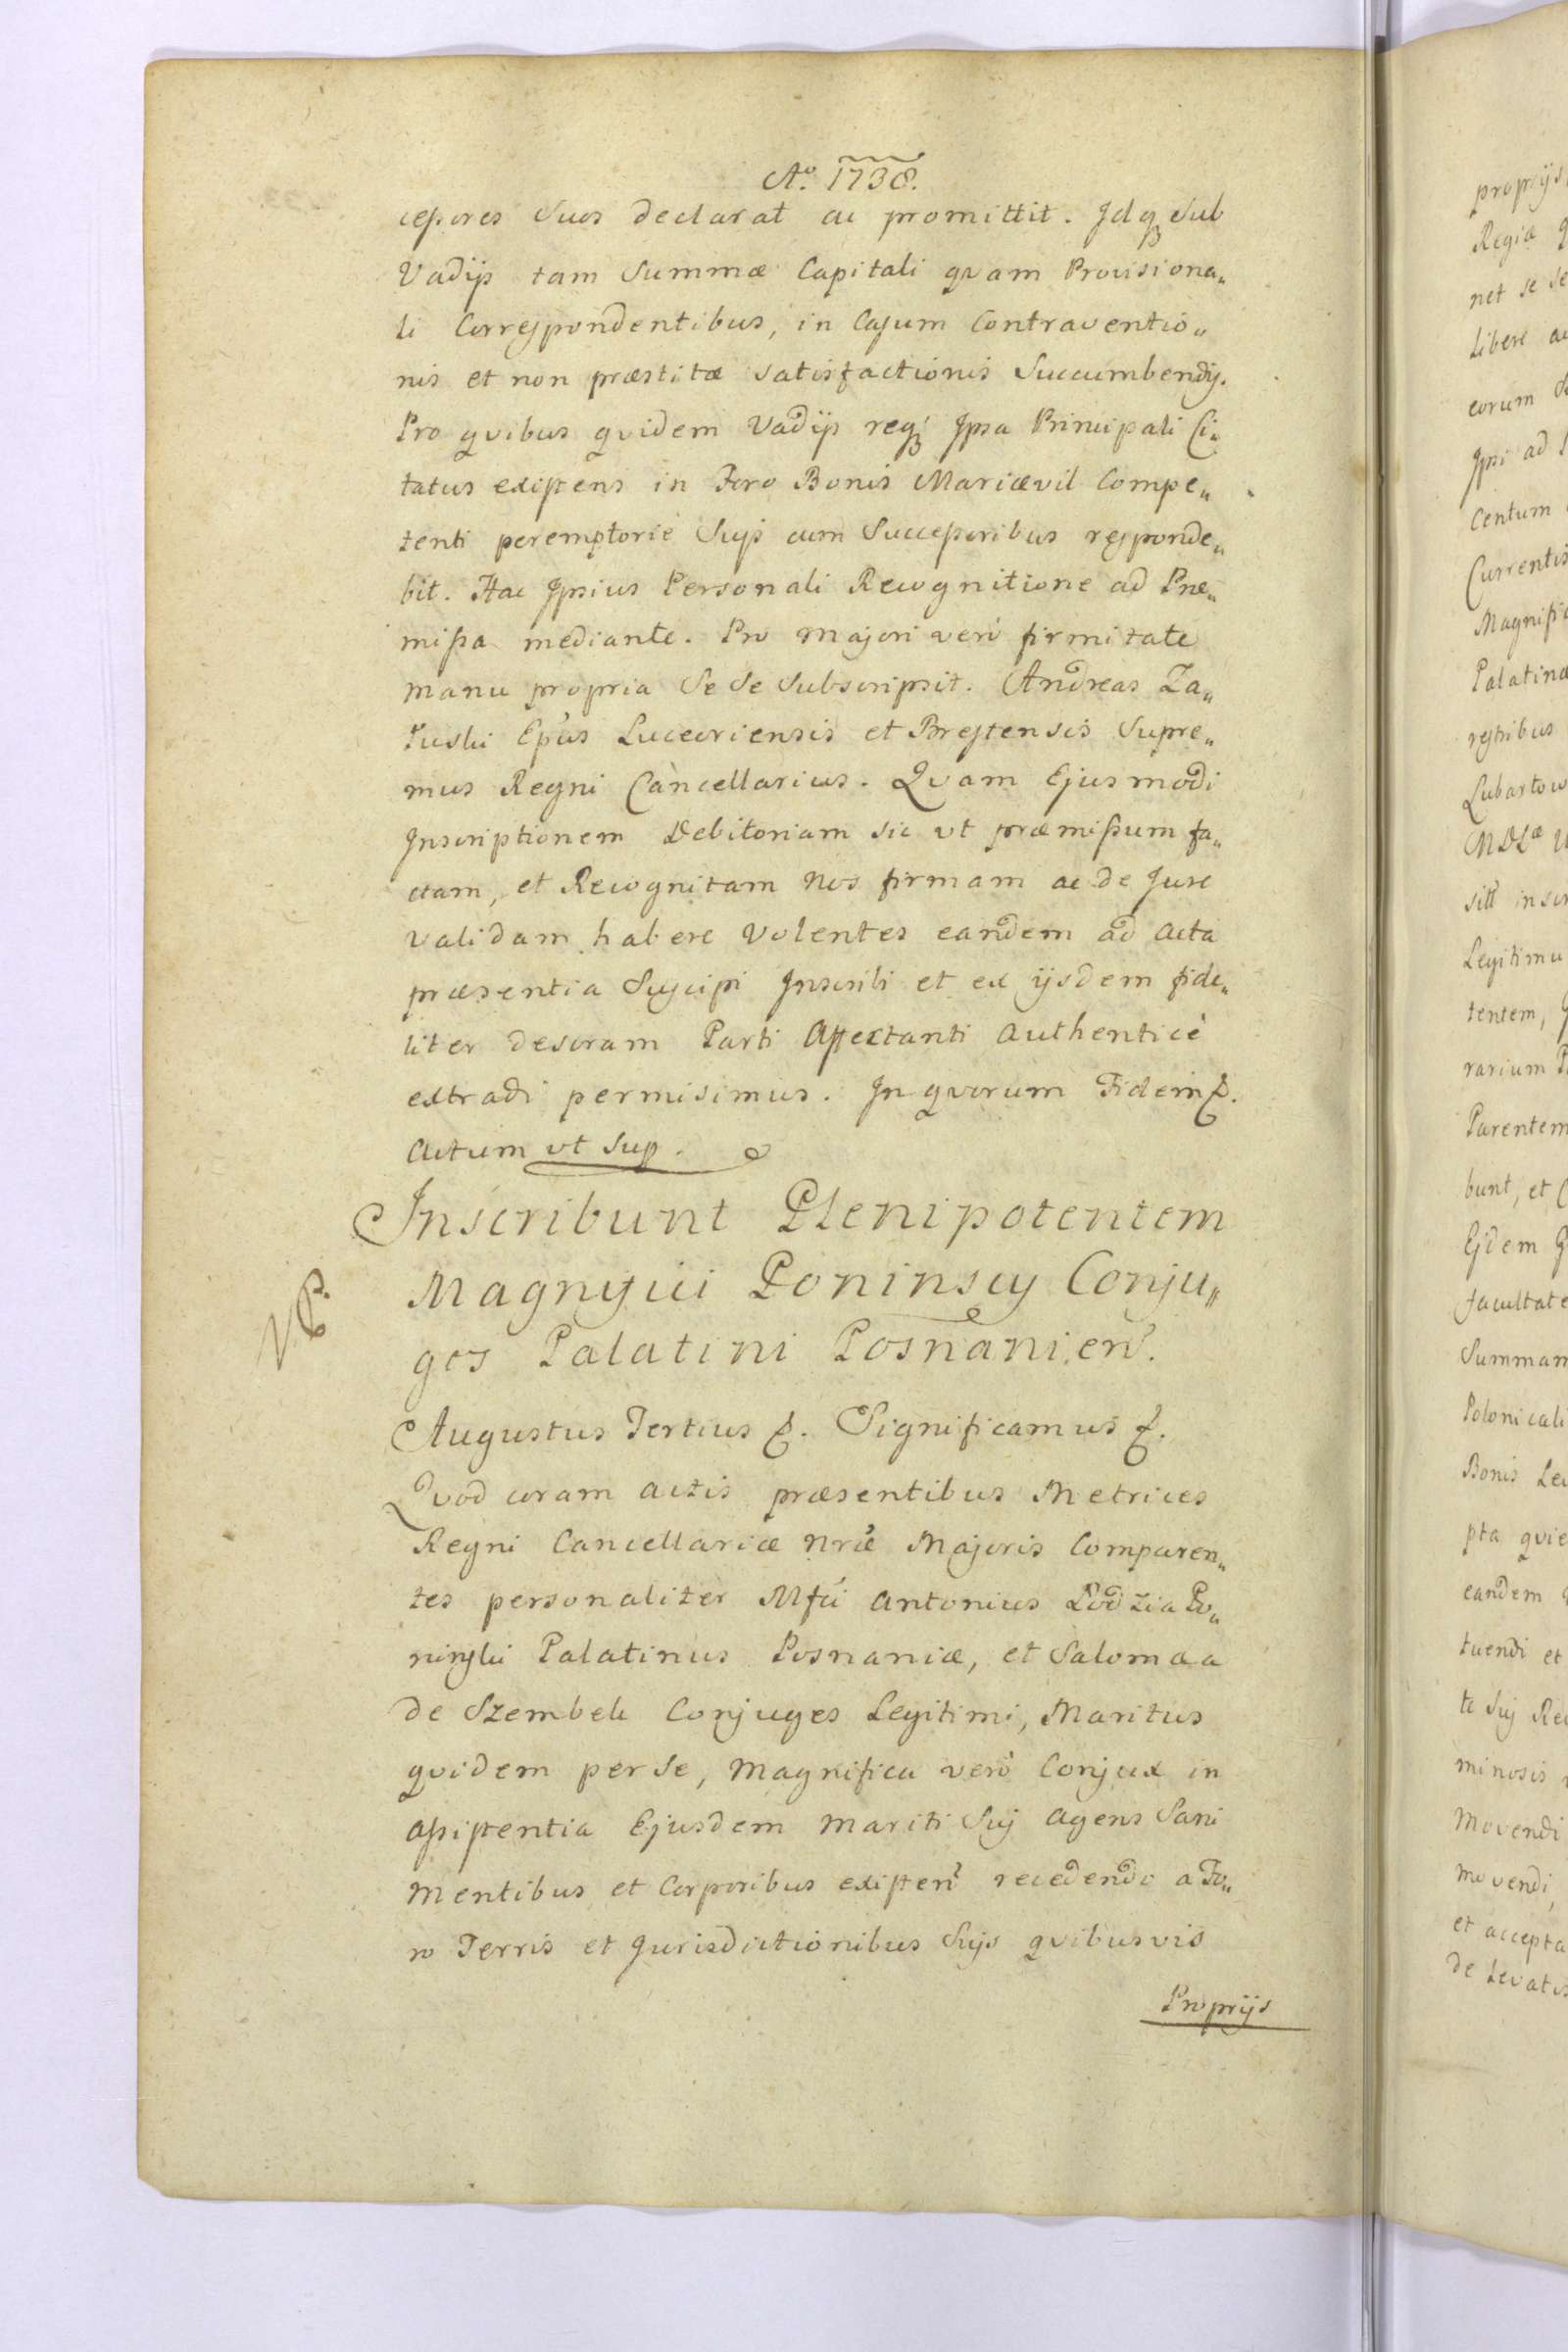 Aº. 1738.
cessores Suos declarat ac promittit. Idq₃ Sub
Vadijs tam Summæ Capitali qvam Provisiona„
li Correspondentibus, in Casum Contraventio„
nis et non præstitæ satisfactionis Succumbendij.
Pro qvibus qvidem Vadijs req₃ Ipsa Principali Ci„
tatus existens in Foro Bonis Mariævil Compe„
tenti peremptoriè Suis cum Successoribus responde„
bit. Hac Ipsius Personali Recognitione ad Præ„
missa mediante. Pro majori verò firmitate
manu propria Se Se Subscripsit. Andreas Za„
łuski Epūs Luceoriensis et Brestensis Supre„
mus Regni Cancellarius. Qvam Ejusmodi
Inscriptionem Debitoriam sic ut præmissum fa„
ctam, et Recognitam Nos firmam ac de Jure
validam habere Volentes eandem ad Acta
præsentia Suscipi Inscribi et ex ijsdem fide„
liter descram Parti Affectanti Authenticè
extradi permisimus. In qvorum Fidem &.
Actum ut Sup.
Inscribunt Plenipotentem
Magnifici Poninscy Conju„
ges Palatini Posnanien̄.
Augustus Tertius &. Significamus &.
Qvod coram Actis præsentibus Metrices
Regni Cancellariæ Nræ Majoris Comparen„
tes personaliter Mfci Antonius Łodzia Po„
ninski Palatinus Posnaniæ, et Salomæa
de Szembek Conjuges Legitimi, Maritus
qvidem per se, Magnifica verò Conjux in
Assistentia Ejusdem Mariti Sui Agens Sani
Mentibus et Corporibus existen̄ recedendo a Fo„
ro Terris et Jurisdictionibus Suis qvibusvis
Proprijs
proprijs
Regiæ
net se se
Libere ac
eorum
Ipsi ad
Centum
Currentis
Magnific
Palatinæ
Lubartow
MDLæ
Legitimu
tentem,
rarium
Parentem
bunt, et
Ejdem
facultate
Summam
Polonicali
Bonis
pta qvie
eandem
tuendi et
te Sui
minosis
Movendi
movendi,
et accepta
de Levatis